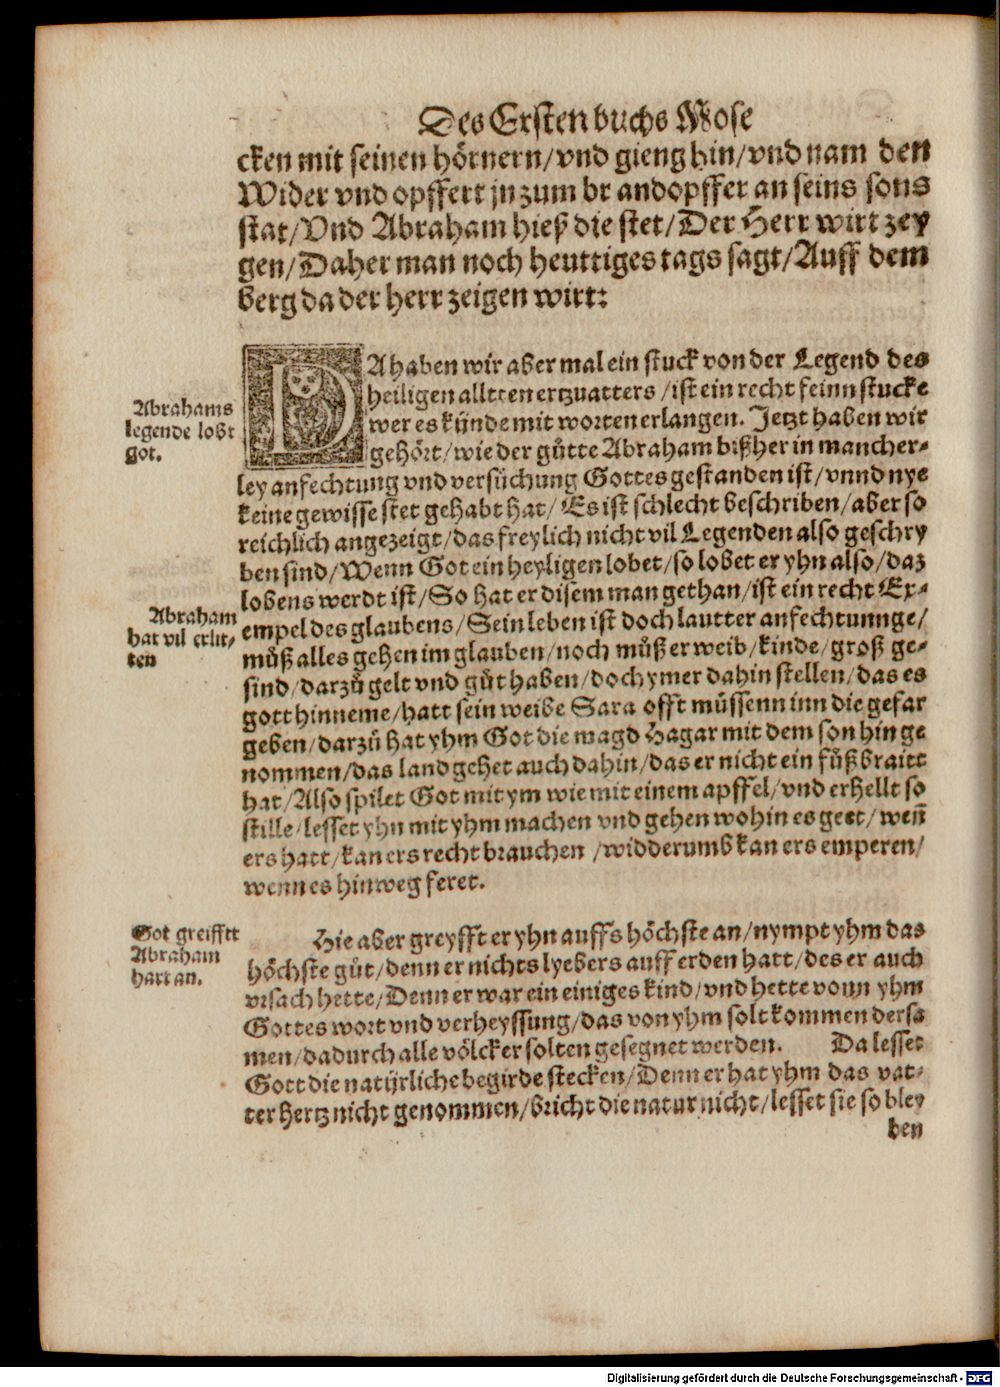 Des Ersten buchs Mose
cken mit seinen hörnern/vnd gieng hin/vnd nam den
Wider vnd opffert jn zum brandopffer an seins sons
stat/Vnd Abraham hieß die stet/Der Herr wirt zey
gen/Daher man noch heuttiges tags sagt/Auff dem
berg da der herr zeigen wirt:
DA haben wir aber mal ein stuck von der Legend des
heiligen alltten ertzuatters/ist ein recht feinn stucke
Abrahams
wer es kijnde mit worten erlangen. Jetzt haben wir
legende lobt
gehört/wie der gůtte Abraham bißher in mancher-
got.
ley anfechtung vnd versüchung Gottes gestanden ist/vnnd nye
keine gewisse stet gehabt hat/Es ist schlecht beschriben/aber so
reichlich angezeigt/das freylich nicht vil Legenden also geschry
ben sind/Wenn Got ein heyligen lobet/so lobet er yhn also/daz
lobens werdt ist/So hat er disem man gethan/ist ein recht Ex-
Abraham
empel des glaubens/Sein leben ist doch lautter anfechtunnge/
hat vil erlit-
můß alles gehen im glauben/noch můß er weib/kinde/groß ge-
ten
sind/darzů gelt vnd gůt haben/doch ymer dahin stellen/das es
gott hinneme/hatt sein weibe Sara offt müssenn inn die gefar
geben/darzů hat yhm Got die magd Hagar mit dem son hin ge
nommen/das land gehet auch dahin/das er nicht ein fůßbraitt
hat/Also spilet Got mit ym wie mit einem apffel/vnd er hellt so
stille/lesset yhn mit yhm machen vnd gehen wohin es geet/weñ
ers hatt/kan ers recht brauchen/widderumb kan ers emperen/
wenn es hinweg feret.
Got greifftt
Hie aber greyfft er yhn auffs höchste an/nympt yhm das
Abraham
höchste gůt/denn er nichts lyebers auff erden hatt/des er auch
hart an.
vrsach hette/Denn er war ein einiges kind/vnd hette vonn yhm
Gottes wort vnd verheyssung/das von yhm solt kommen der sa
men/dadurch alle völcker solten gesegnet werden. Da lesset
Gott die natijrliche begirde stecken/Denn er hat yhm das vat-
ter hertz nicht genommen/bricht die natur nicht/lesset sie so bley
ben
Digitalisierung gefördert durch die Deutsche Forschungsgemeinschaft - DFG